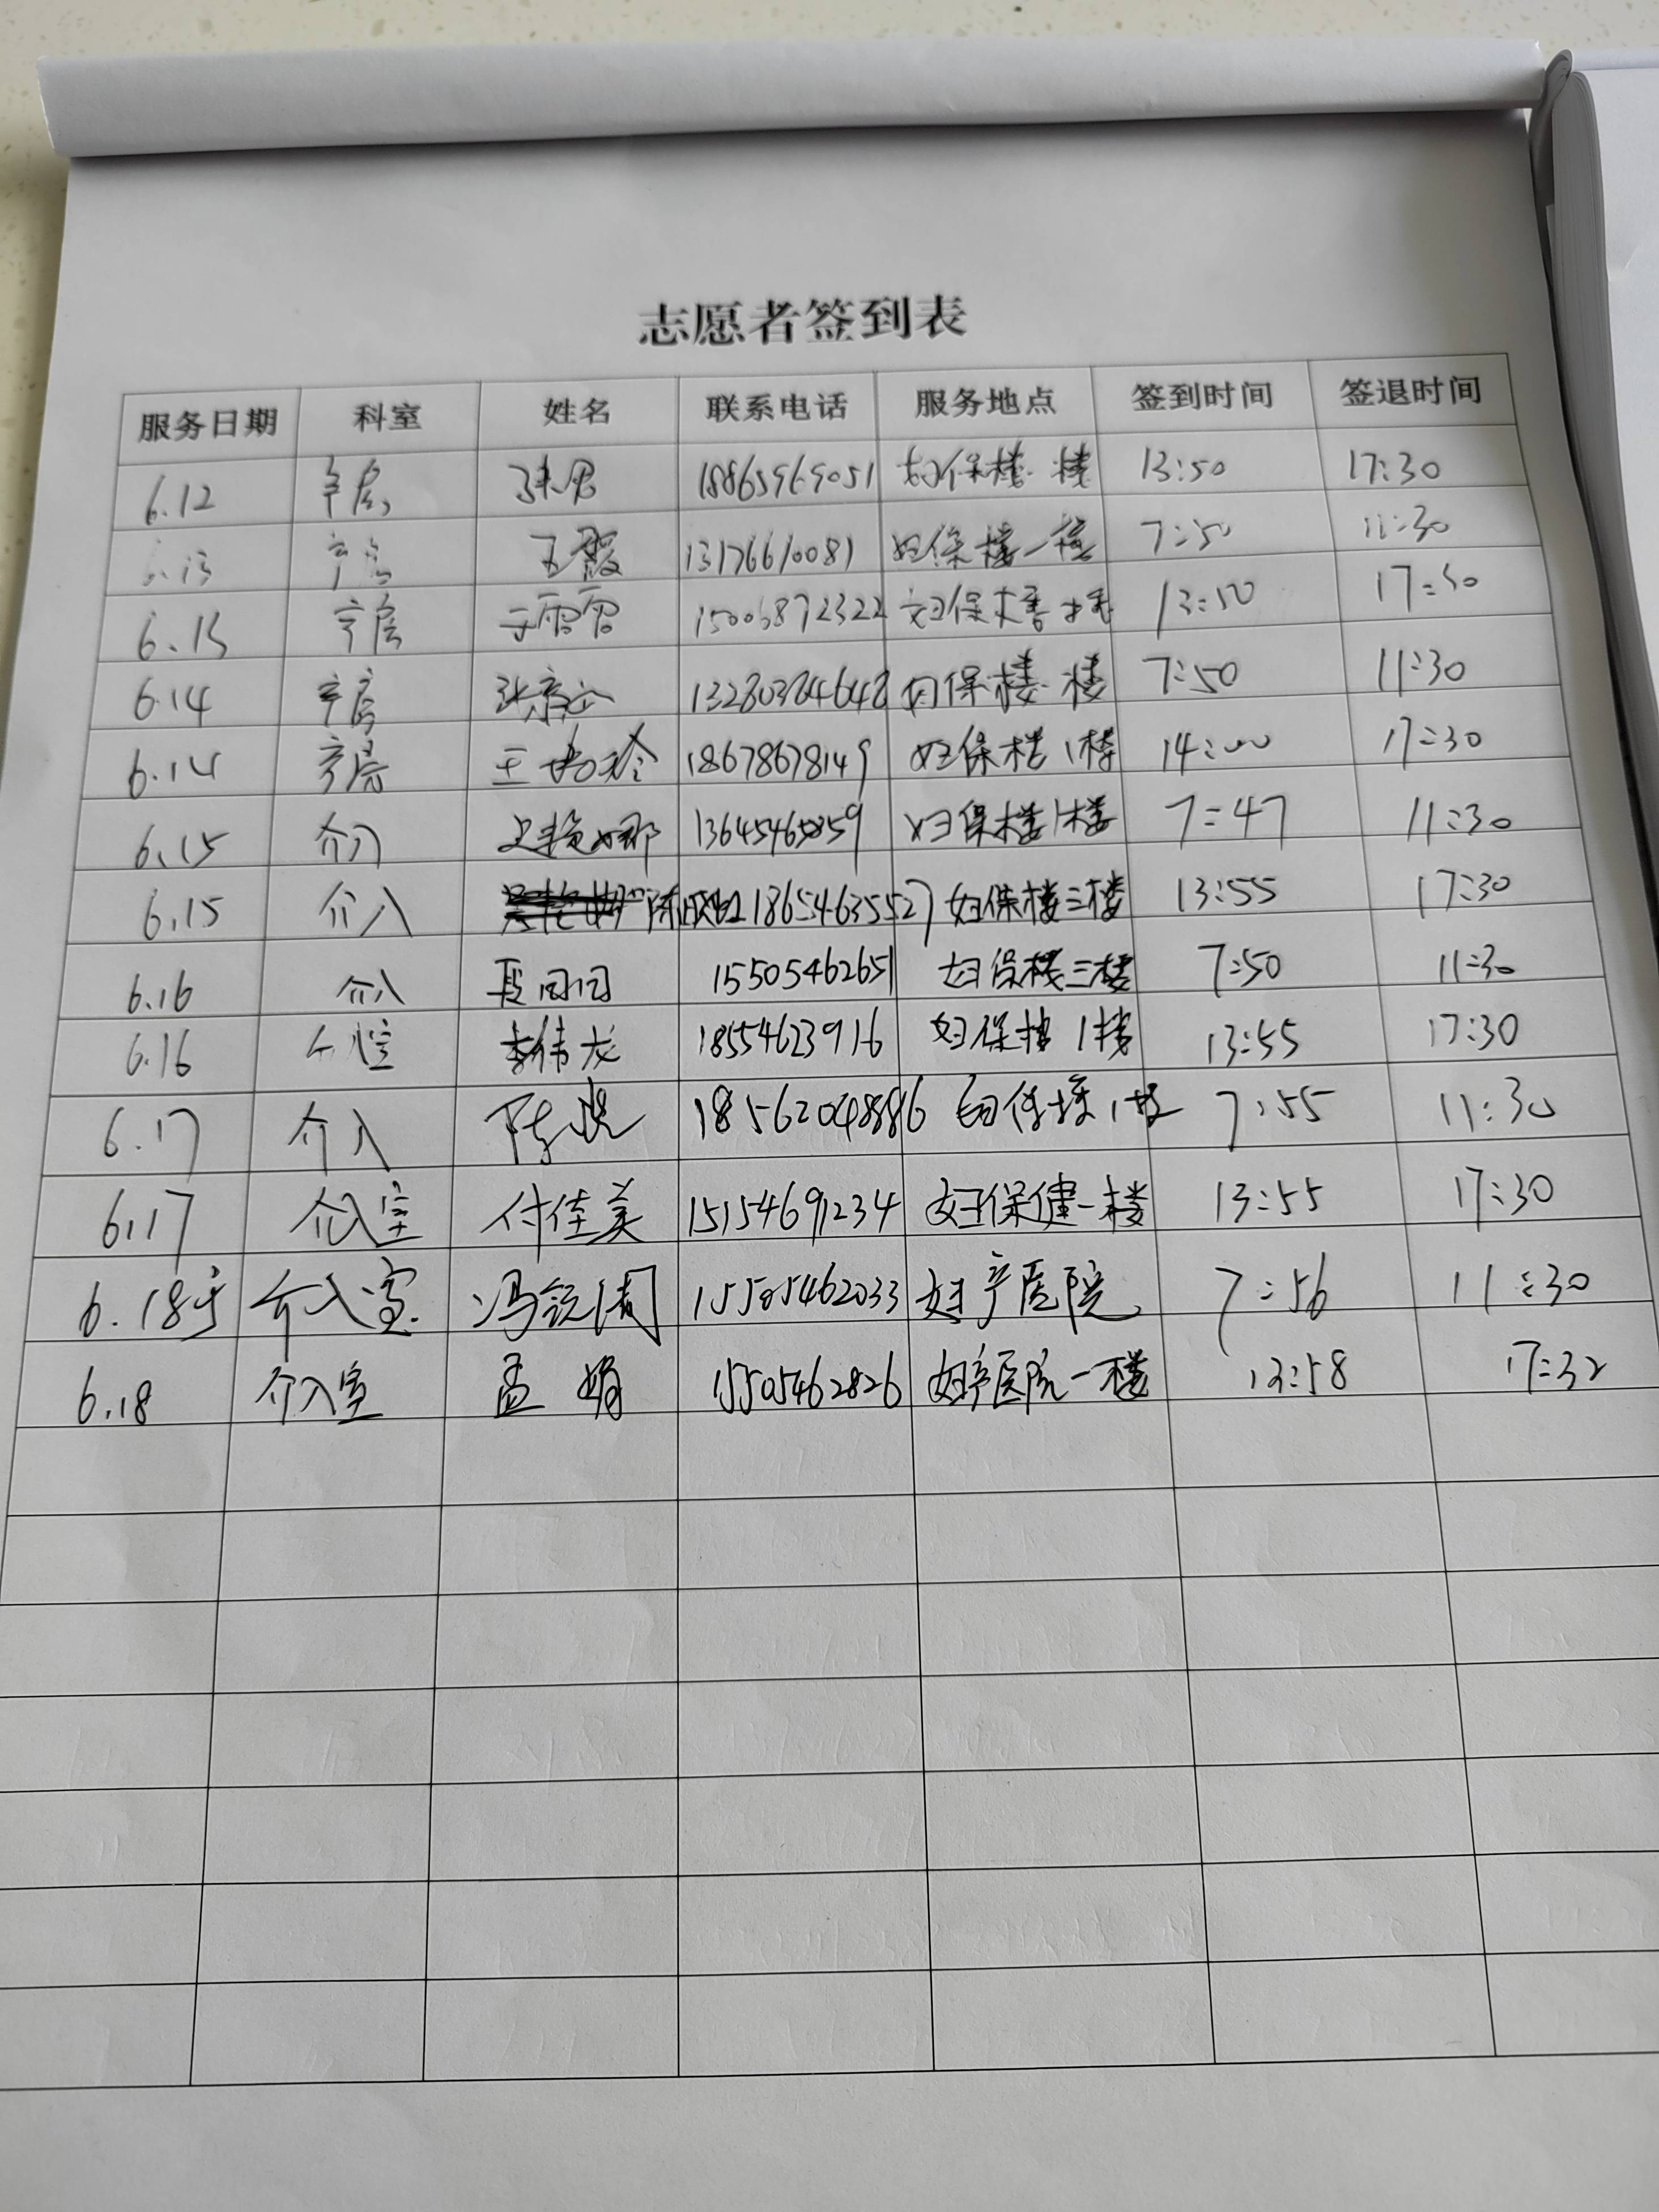 志愿者签到表
服务日期 科室 姓名 联系电话 服务地点 签到时间 签退时间
6.12 张君 18865969051 妇保楼一楼 13:50 17:30
6.13 王霞 13176610081 妇保楼一楼 7:50 11:30
6.13 于雪雷 15006872322 妇保楼 13:50 17:30
6.14 13280384648 妇保楼一楼 7:50 11:30
6.14 王 18678678149 妇保楼1楼 14:00 17:30
6.15 介入 史艳娜 13645465859 妇保楼1楼 7:47 11:30
6.15 介入 18654635527 妇保楼三楼 13:55 17:30
6.16 介入 段团团 15505462651 妇保楼三楼 7:50 11:30
6.16 李伟龙 18554623916 妇保楼1楼 13:55 17:30
6.17 介入 陈 18562048886 妇保楼1楼 7:55 11:30
6.17 介入室 付佳美 15154691234 妇保健一楼 13:55 17:30
6.18号 介入室 冯 15505462033 妇产医院 7:56 11:30
6.18 介入室 孟娟 15505462826 妇产医院一楼 13:58 17:32